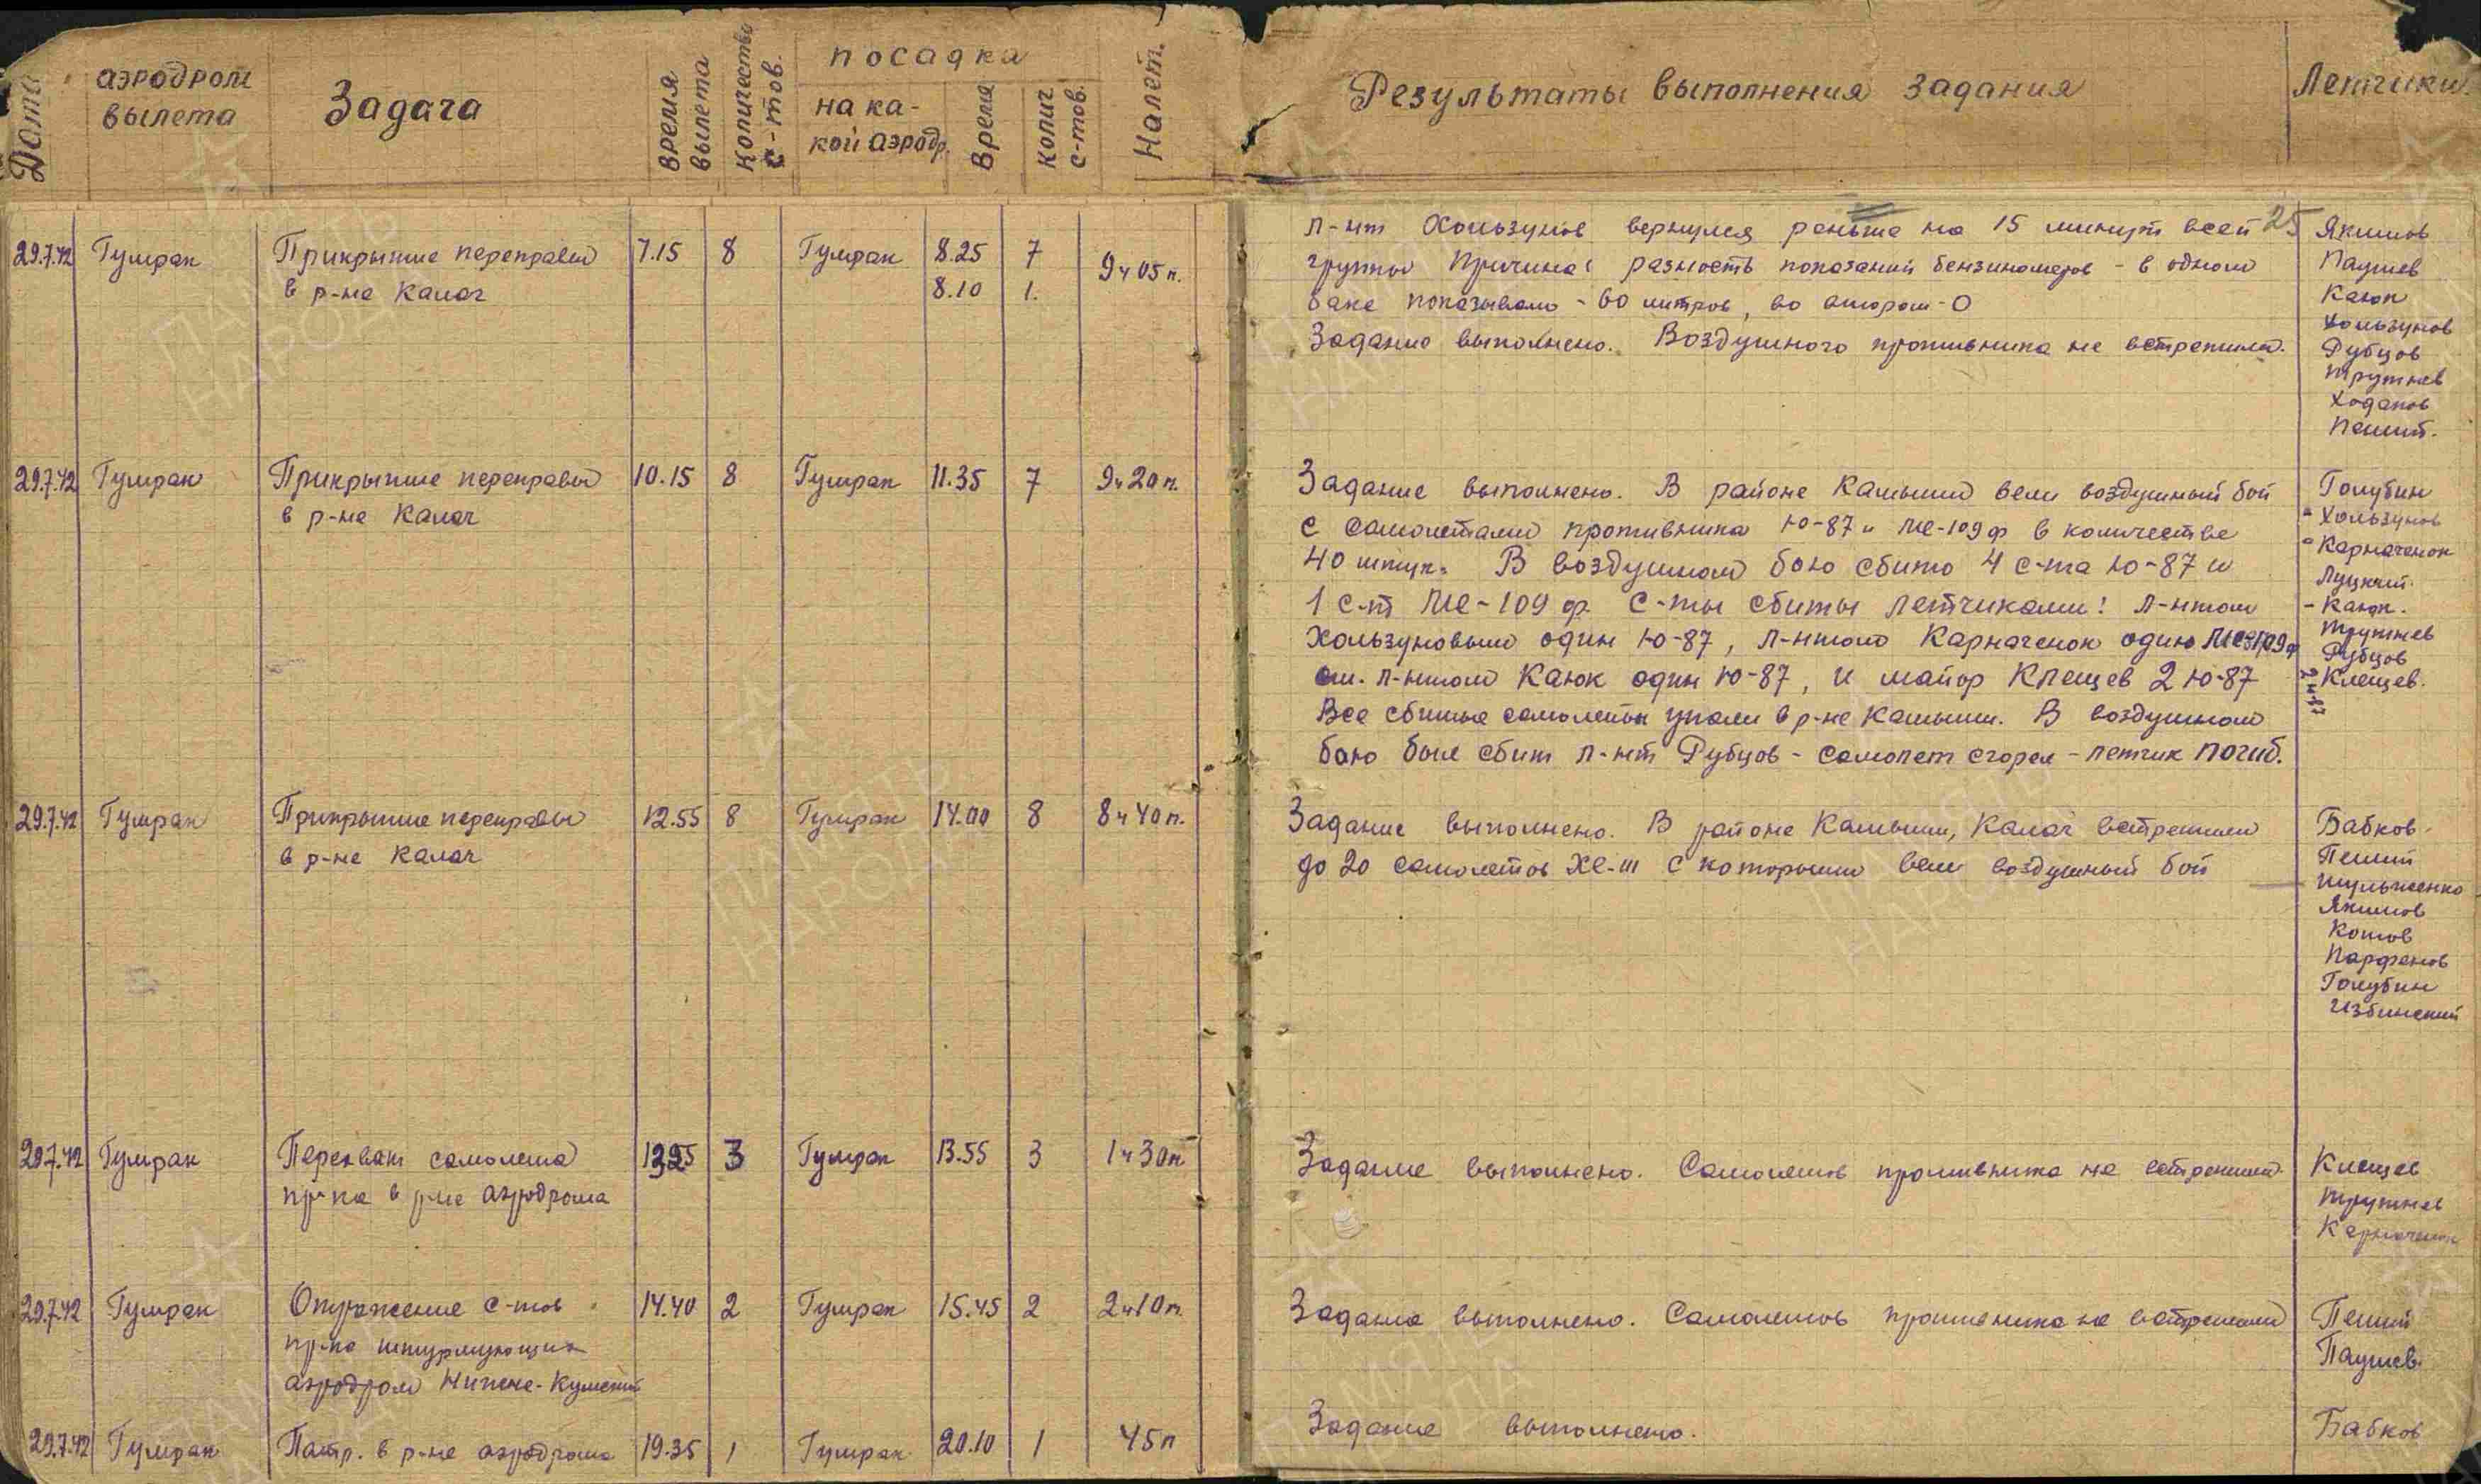 Дата
аэродром
вылета
Задача
время
вылета
количество
с-тов.
посадка
на ка-
кой аэродр.
Время
колич
с-тов.
Налет.
Результаты выполнения задания
Летчики
25
29.7.42 Гумрак Прикрытие переправы 7.15 8 Гумрак 8.25 7 9ч05м.
в р-не Калач 8.10 1.
л-нт Хользунов вернулся раньше на 15 минут всей
группы Причина: разность показаний бензиномеров - в одном
баке показывало - 60 литров, во втором - 0
Задание выполнено. Воздушного противника не встретили.
Якимов
Паушев
Каюк
Хользунов
Рубцов
Трутнев
Ходаков
Пеший.
29.7.42 Гумрак Прикрытие переправы 10.15 8 Гумрак 11.35 7 9ч20м.
в р-не Калач
Задание выполнено. В районе Камыши вели воздушный бой
с самолетами противника Ю-87 и Ме-109ф в количестве
40 штук. В воздушном бою сбито 4 с-та Ю-87 и
1 с-т Ме-109ф. С-ты сбиты летчиками: л-нтом
Хользуновым один Ю-87, л-нтом Карначенок один Ме-109ф
ст. л-нтом Каюк один Ю-87, и майор Клещев 2 Ю-87
Все сбитые самолеты упали в р-не Камыши. В воздушном
бою был сбит л-нт Рубцов - самолет сгорел - летчик погиб.
Голубин
Хользунов
Карначенок
Луцкий.
- Каюк.
Трутнев
Рубцов
Клещев.
29.7.42 Гумрак Прикрытие переправы 12.55 8 Гумрак 14.00 8 8ч40м.
в р-не Калач
Задание выполнено. В районе Камыши, Калач встретили
до 20 самолетов ХЕ-111 с которыми вели воздушный бой
Бабков
Пеший
Шульженко
Якимов
Котов
Парфенов
Голубин
Избинский
29.7.42 Гумрак Перехват самолета 1325 3 Гумрак 13.55 3 1ч30м
пр-ка в р-не аэродрома
Задание выполнено. Самолетов противника не встретили.
Клещев
Трутнев
Карначенок
29.7.42 Гумрак Отражение с-тов 14.40 2 Гумрак 15.45 2 2ч10м.
пр-ка штурмующих
аэродром Нижне-Кумский
Задание выполнено. Самолетов противника не встретили
Пеший
Паушев.
29.7.42 Гумрак Патр. в р-не аэродрома 19.35 1 Гумрак 20.10 1 45м
Задание выполнено.
Бабков